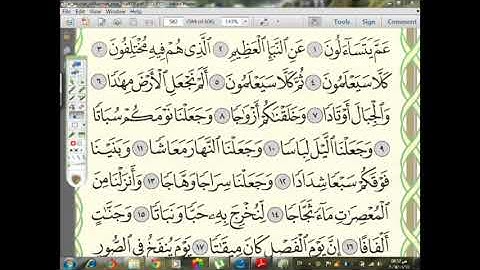 582
143%
Tools
Comment
عَمَّ يَتَسَآءَلُونَ ١ عَنِ ٱلنَّبَإِ ٱلْعَظِيمِ ٢ ٱلَّذِى هُمْ فِيهِ مُخْتَلِفُونَ ٣
كَلَّا سَيَعْلَمُونَ ٤ ثُمَّ كَلَّا سَيَعْلَمُونَ ٥ أَلَمْ نَجْعَلِ ٱلْأَرْضَ مِهَٰدًا ٦
وَٱلْجِبَالَ أَوْتَادًا ٧ وَخَلَقْنَٰكُمْ أَزْوَٰجًا ٨ وَجَعَلْنَا نَوْمَكُمْ سُبَاتًا
٩ وَجَعَلْنَا ٱلَّيْلَ لِبَاسًا ١٠ وَجَعَلْنَا ٱلنَّهَارَ مَعَاشًا ١١ وَبَنَيْنَا
فَوْقَكُمْ سَبْعًا شِدَادًا ١٢ وَجَعَلْنَا سِرَاجًا وَهَّاجًا ١٣ وَأَنزَلْنَا مِنَ
ٱلْمُعْصِرَٰتِ مَآءً ثَجَّاجًا ١٤ لِّنُخْرِجَ بِهِۦ حَبًّا وَنَبَاتًا ١٥ وَجَنَّٰتٍ
أَلْفَافًا ١٦ إِنَّ يَوْمَ ٱلْفَصْلِ كَانَ مِيقَٰتًا ١٧ يَوْمَ يُنفَخُ فِى ٱلصُّورِ